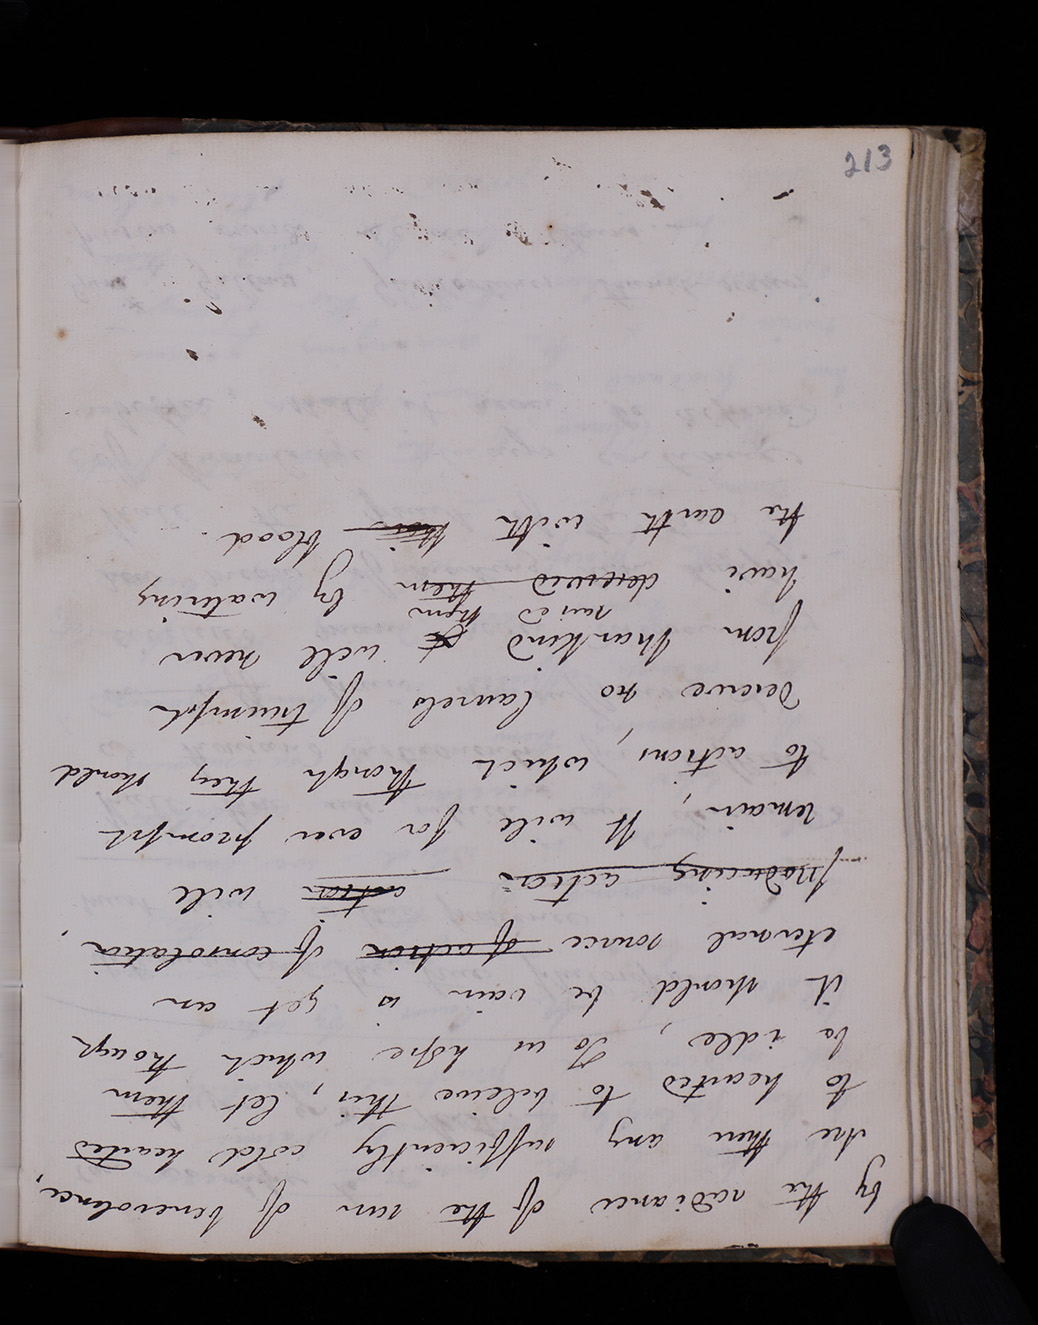 213
by the radiance of the sun of benevolence,
Are then any sufficiently cold hearted
to hearted to beleive this, let them
be idle, To us hope which though
it should be vain is yet an
eternal source of action of consolation,
producing action action will
remain, It will for ever prompt
to actions, which though they should
deserve no laurels of triumph
from mankind will never
raised them
have deserved them by watering
the earth with their blood.